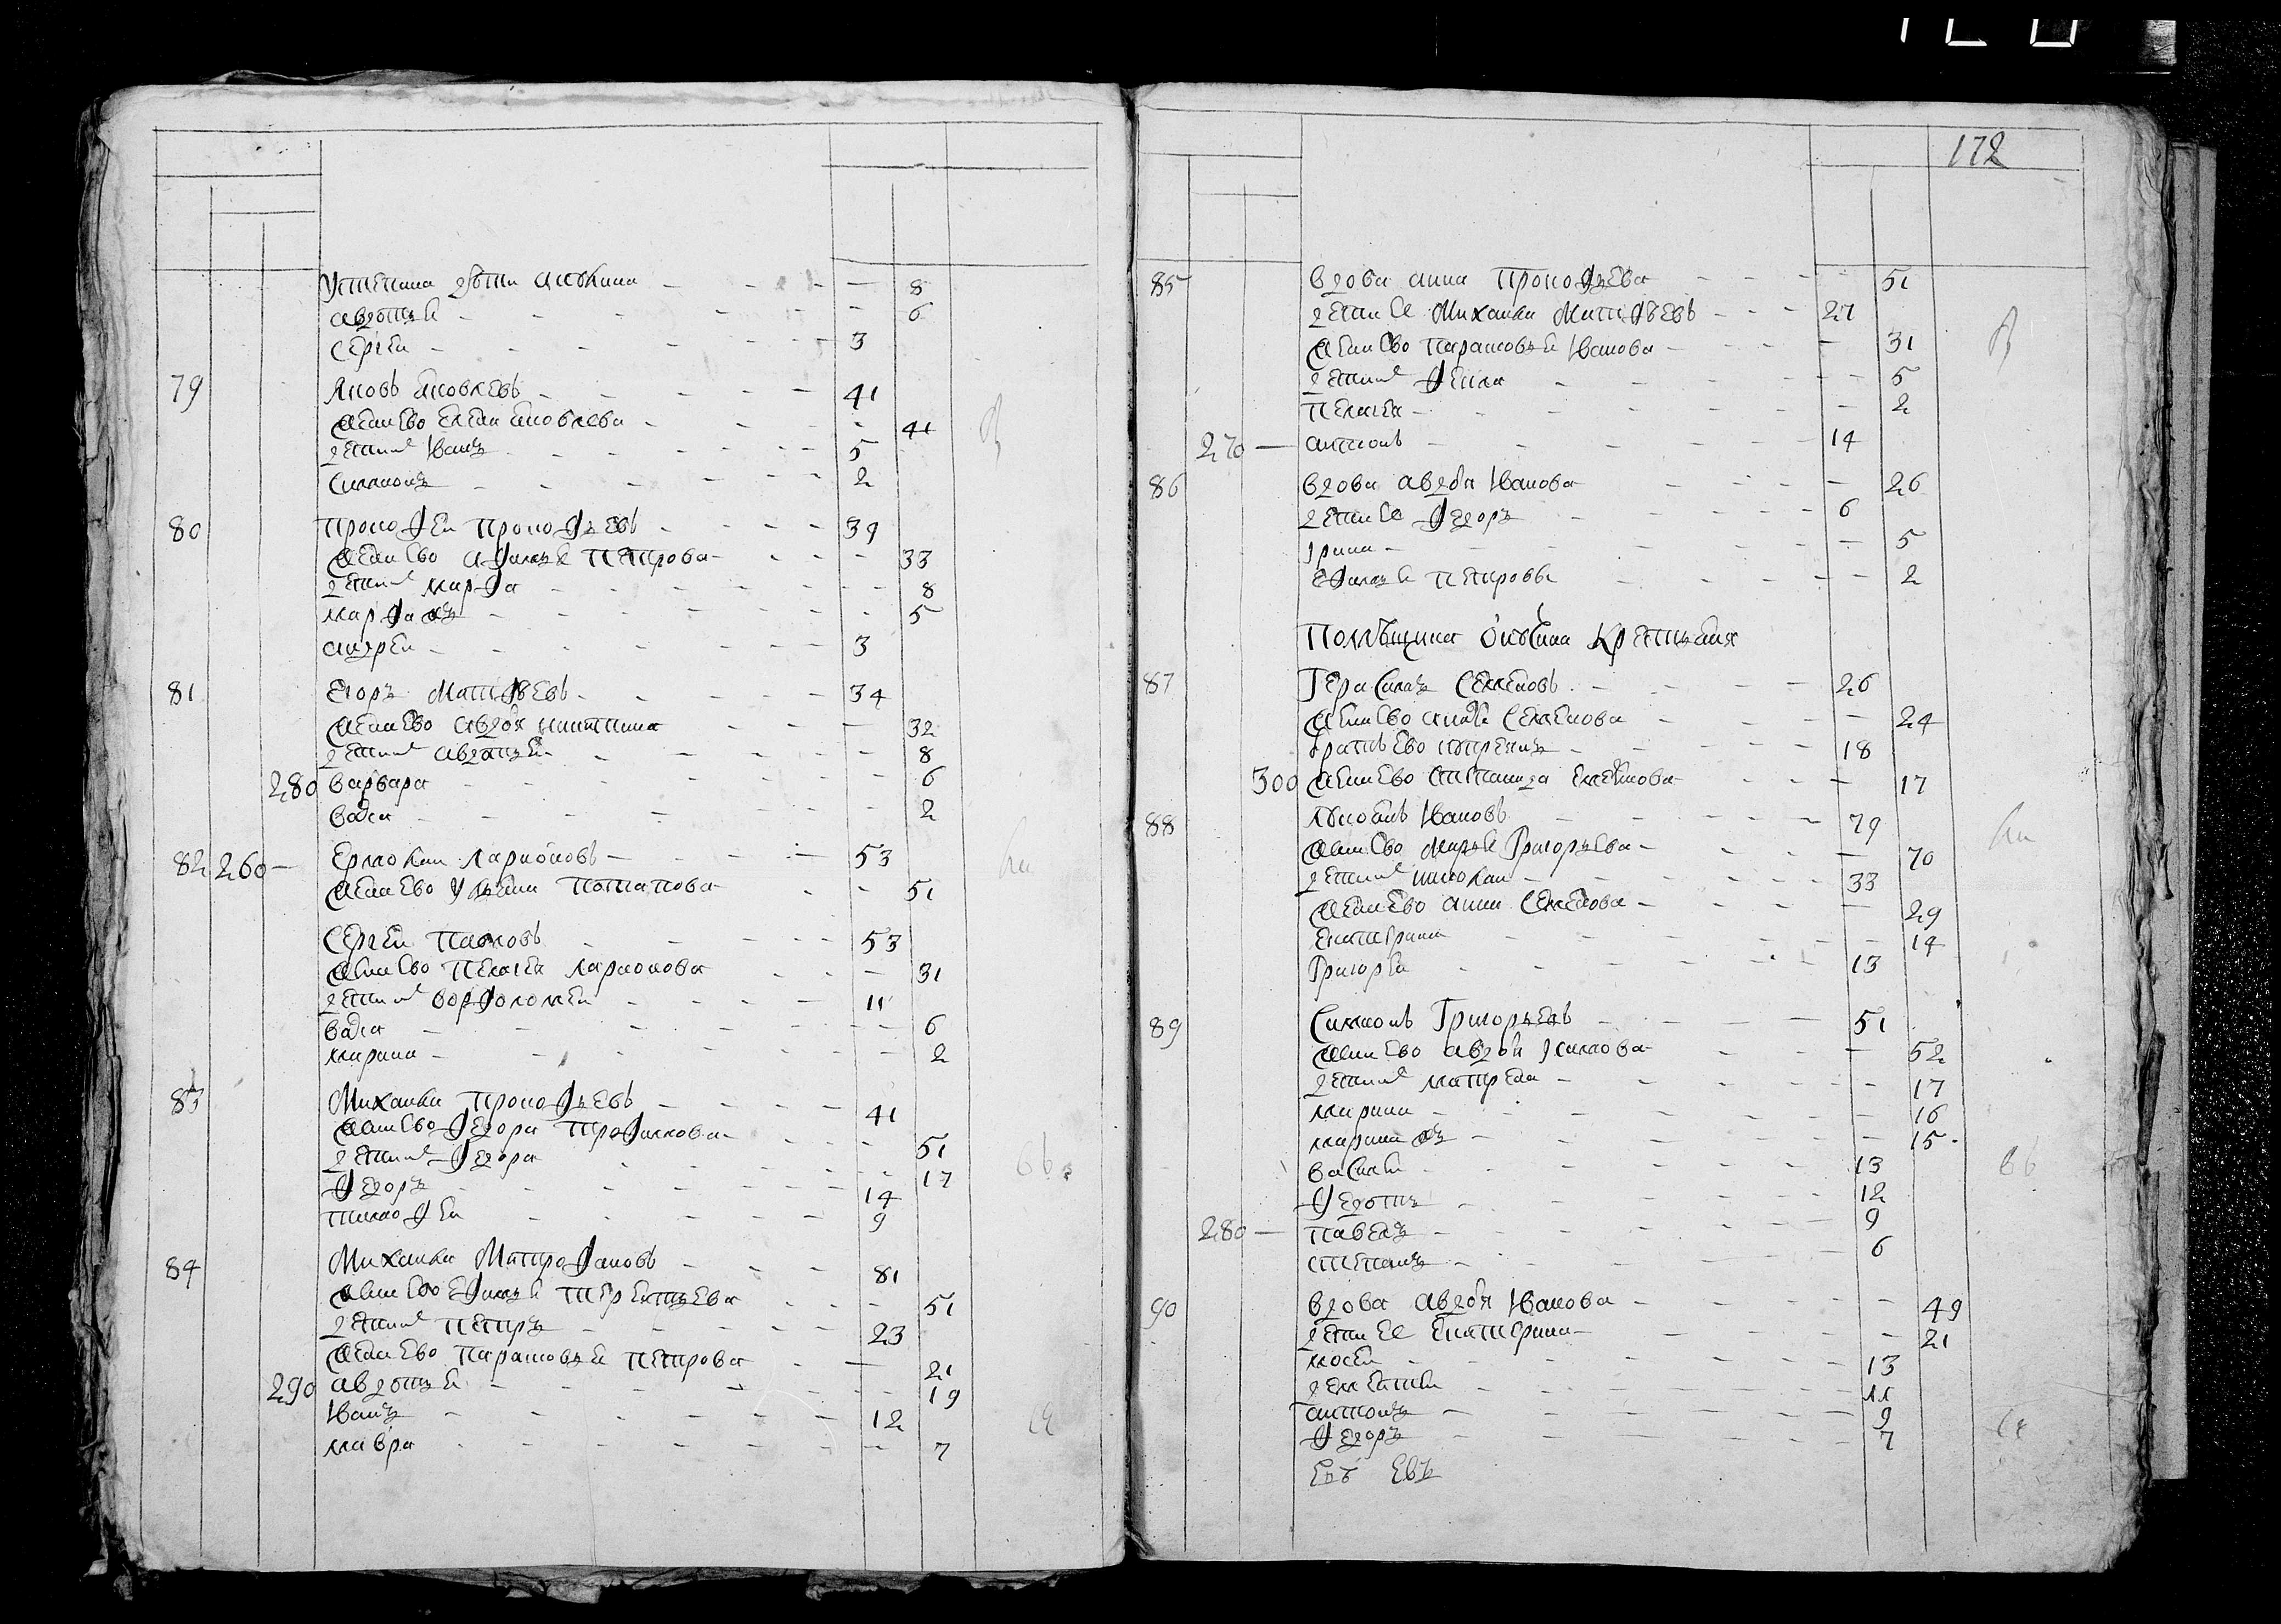 авдотья - 6
сергеи - 3
79 яковъ яковлевъ - 41
жена ево елена яковлева - 41
дети иванъ - 5
симионъ - 2
80 прокофеи прокофьевъ - 39
жена ево афимья петрова - 33
дети марфа - 8
марфа жъ - 5
андреи - 3
81 егоръ матфѣевъ - 34
жена ево авдотя никитина - 32
дети авдотья - 8
280 варвара - 6
2
82 260 ермолаи ларионовъ - 53
жена ево ульяна потапова - 51
сергеи павловъ - 53
жена ево пелагея ларионова - 31
дети ворфоломеи - 11
6
марина - 2
83 Михаила прокофьевъ - 41
жена ево федора трофимова - 51
дети федора - 17
федоръ - 14
тимофеи - 9
84 Михаила Митрофановъ - 81
жена ево ефимья терентьева - 51
дети петръ - 23
жена ево парасковья петрова - 21
290 авдотья - 19
иванъ - 12
мавра - 7
172
85 вдова анна прокофьева - 51
дети ее Михаила Матфѣевъ - 27
жена ево парасковья иванова - 31
дети фекла - 5
пелагея - 2
270 антонъ - 14
86 вдова авдотя иванова - 26
дети ее федоръ - 6
ирина - 5
ефимья петрова - 2
Помѣщика крестьяня
87 Герасимъ Семеновъ - 26
жена ево Семенова - 24
братъ ево - 18
300 жена ево степанида - 17
88 ивановъ - 79
жена ево марья Григорьева - 70
дети николаи - 33
жена ево анна Семенова - 29
екатерина - 14
Григореи - 13
89 Симионъ Григорьевъ - 51
жена ево авдотя - 52
дети матрена - 17
марина - 16
марина жъ - 15
василеи - 13
федотъ - 12
280 павелъ - 9
степанъ - 6
90 вдова авдотя иванова - 49
дети ее екатерина - 21
мосеи - 13
дементеи - 11
антонъ - 9
федоръ - 7